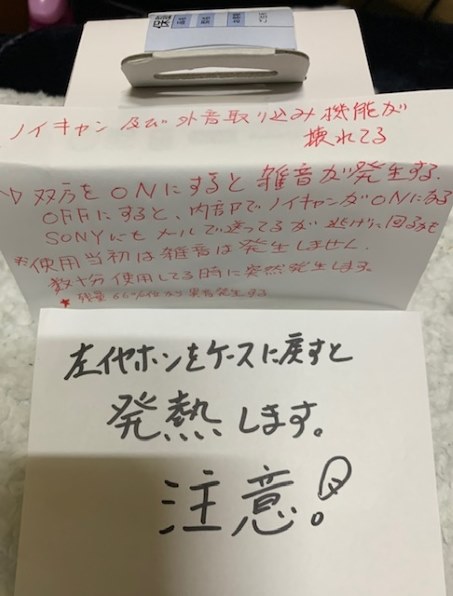 ノイキャン及び外音取り込み機能が
壊れてる
双方をONにすると雑音が発生する.
OFFにすると、内部でノイキャンがONになる
SONYにもメールで送ってるが逃げに回るも
※使用当初は雑音は発生しません.
数十分使用してる時に突然発生します。
左イヤホンをケースに戻すと
発熱します。
注意!